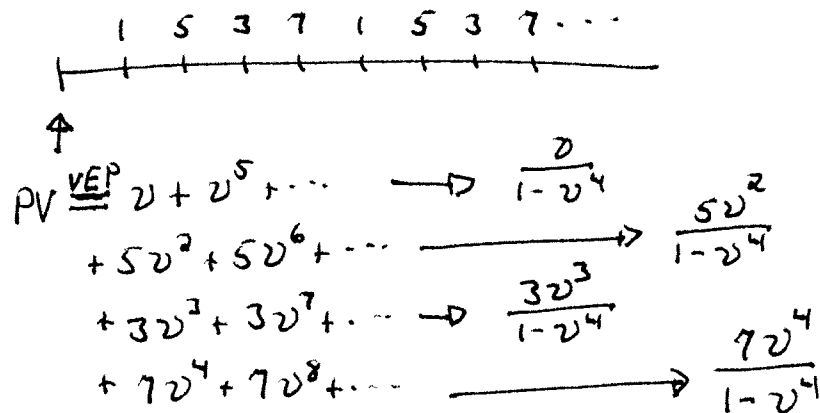 1 5 3 7 1 5 3 7 ...
PV =^{VEP} v + v^5 + ... → v/(1-v^4)
+ 5v^2 + 5v^6 + ... → 5v^2/(1-v^4)
+ 3v^3 + 3v^7 + ... → 3v^3/(1-v^4)
+ 7v^4 + 7v^8 + ... → 7v^4/(1-v^4)